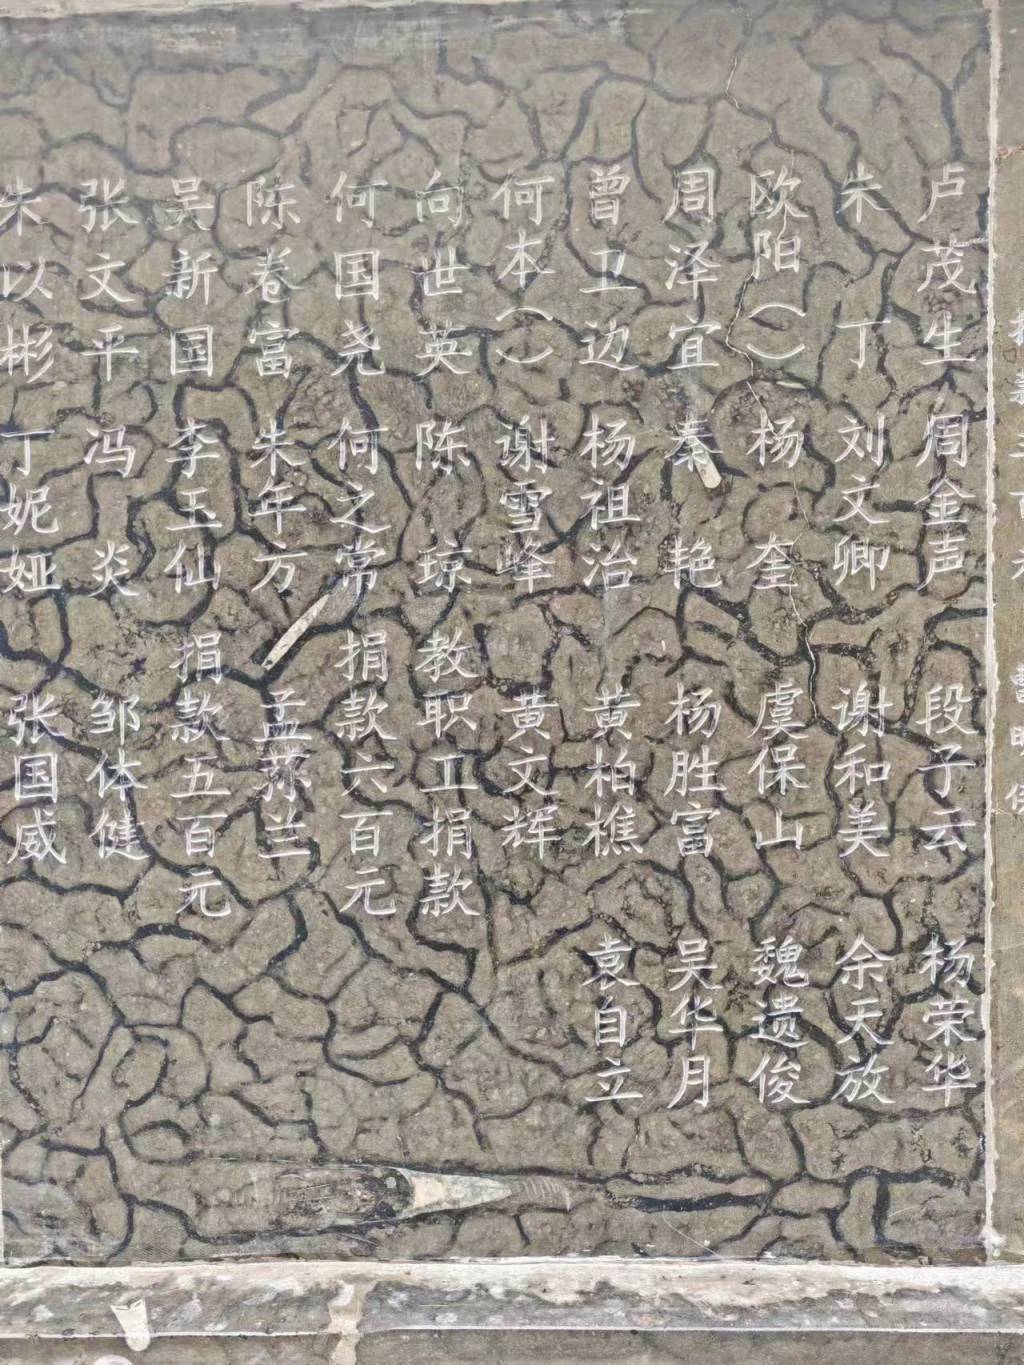 卢茂生 周金声 段子云 杨荣华
朱丁 刘文卿 谢和美 余天放
欧阳() 杨奎 虞保山 魏遗俊
周泽宜 秦艳 杨胜富 吴华月
曾卫边 杨祖治 黄柏樵 袁自立
何本() 谢雪峰 黄文辉
向世英 陈琼 教职工捐款
何国尧 何之常 捐款六百元
陈卷富 朱年方 孟荪兰
吴新国 李玉仙 捐款五百元
张文平 冯炎 邹体健
朱以彬 丁妮娅 张国威